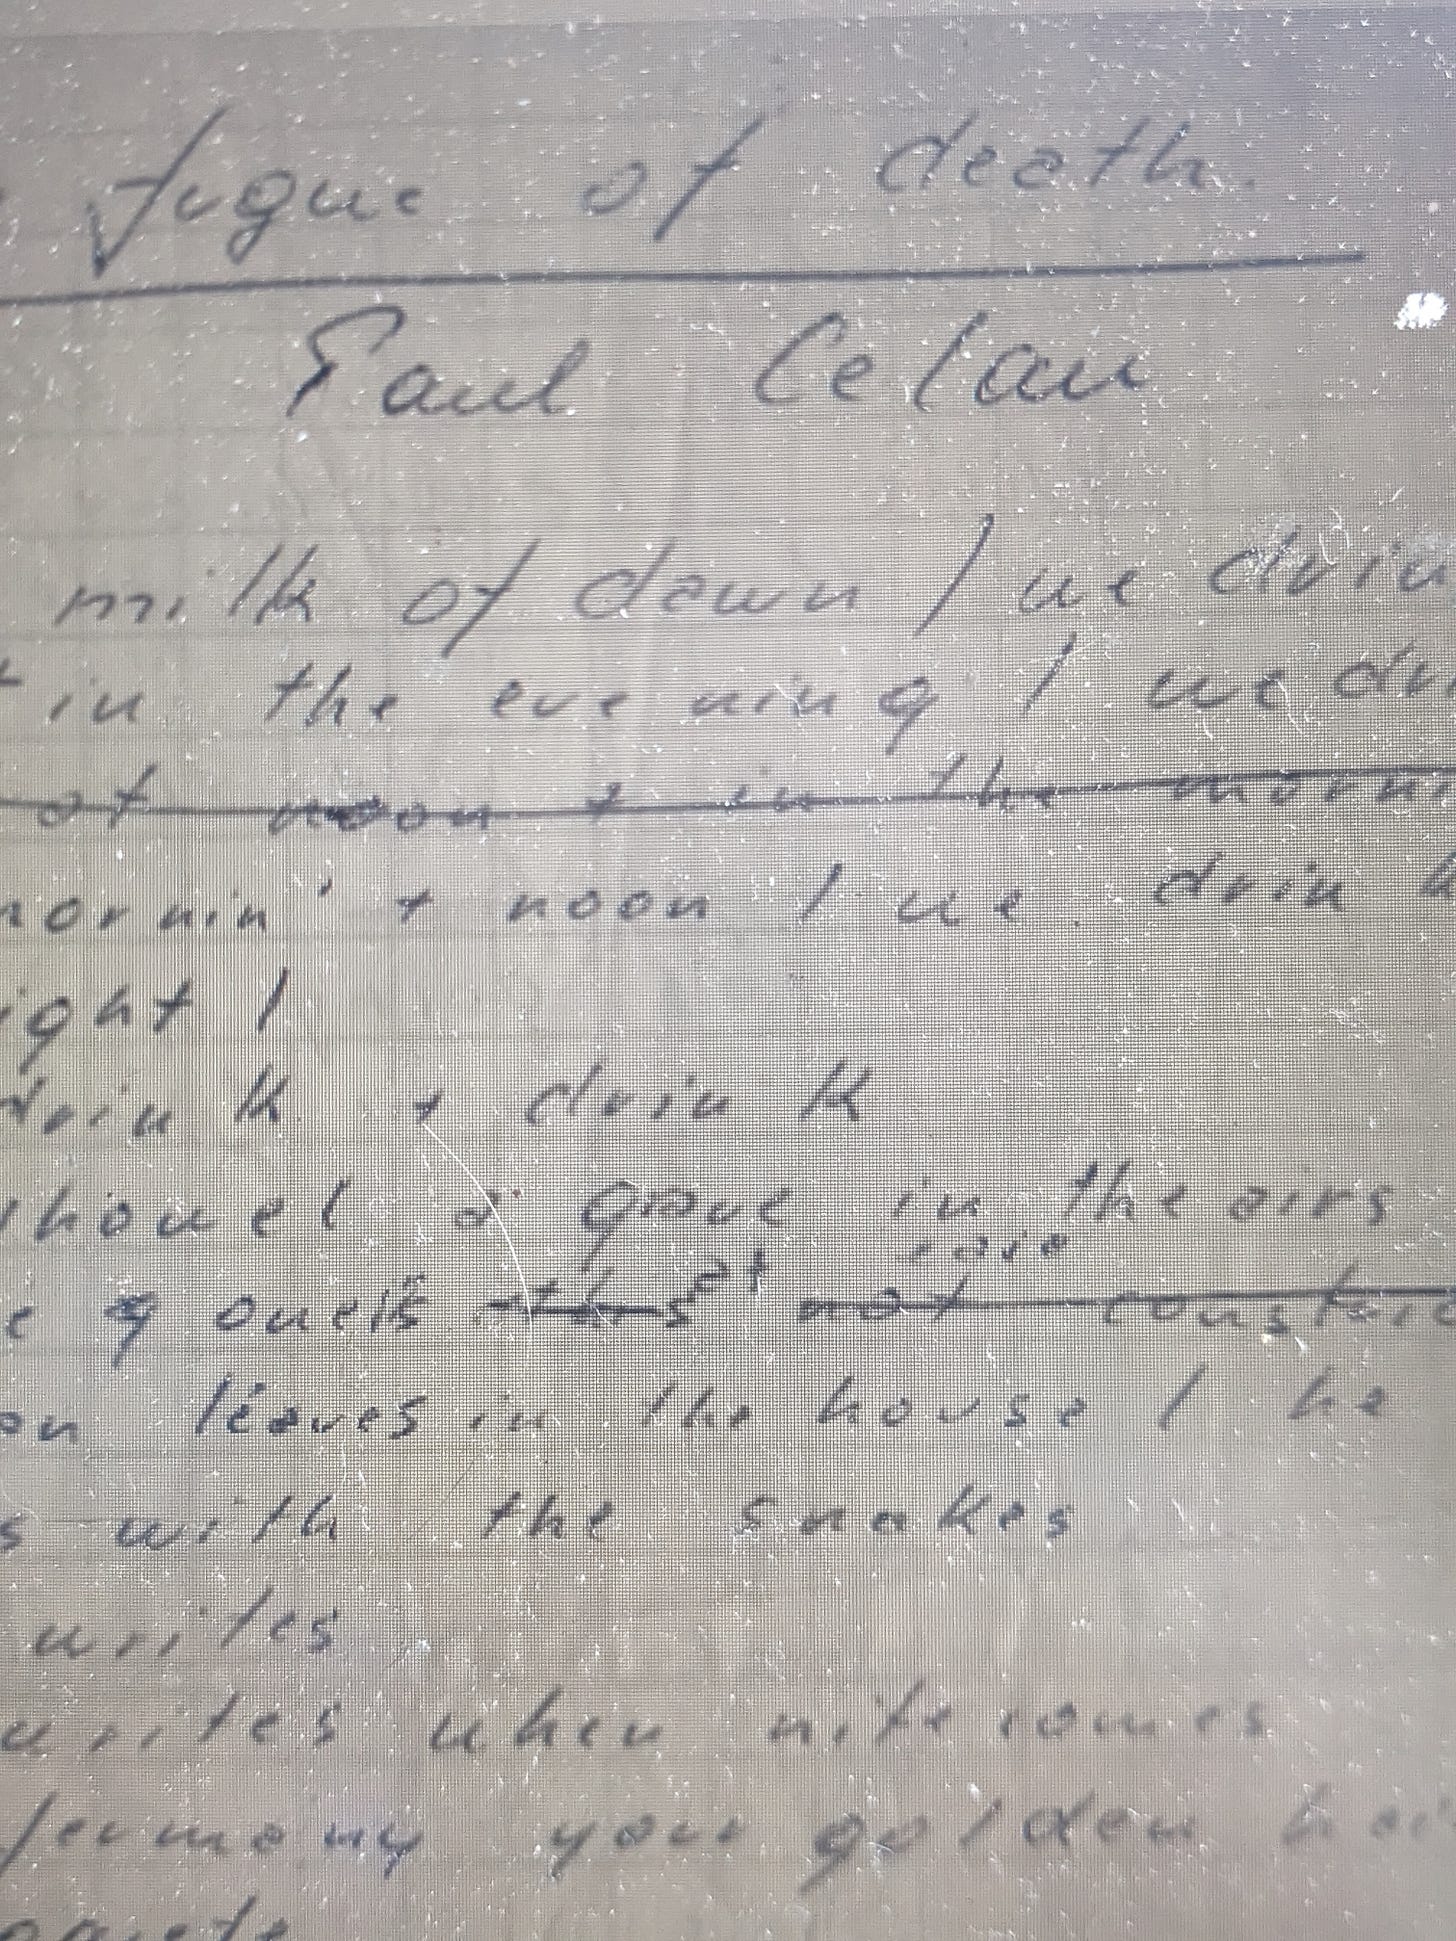 fugue of death.
Paul Celan
milk of dawn / we drin
in the evening / we dri
at noon + in the morni
mornin' + noon / we drink
ight /
drink + drink
shovel a grave in the airs
e
on leaves in the house / he
s with the snakes
writes
writes when nite comes
Germany your golden hai